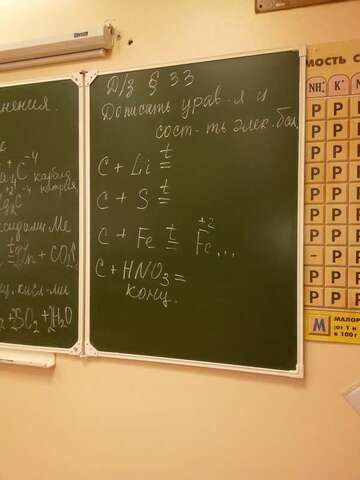 нения.
C⁻⁴ карбид
натрия
ксидами Me
+ CO₂
ц. кисл-ми
+ SO₂ + H₂O
Д/З § 33
Дописать урав-я и
сост-ть элек. бал.
C + Li t=
C + S t=
C + Fe t= Fe⁺²...
C + HNO₃ =
конц.
МОСТЬ С
NH₄⁺ K⁺
P P
P P
P P
P P
P P
P P
P P
- P
P P
P P
М МАЛОР